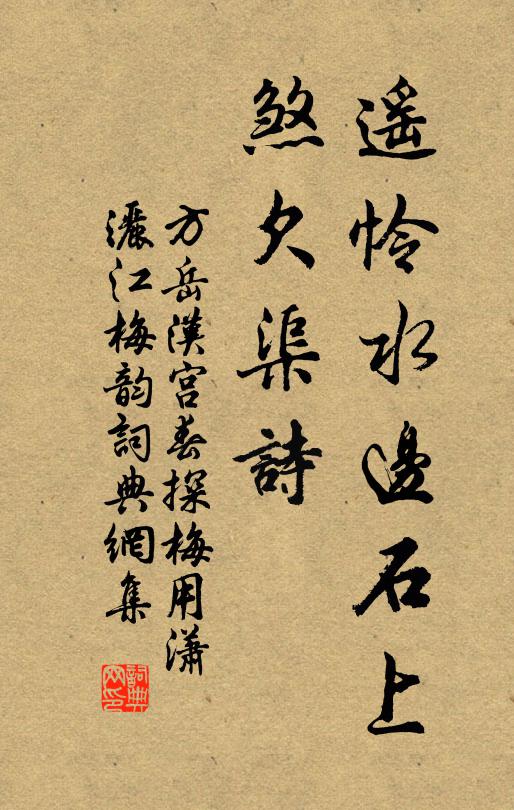 遥怜水邊石上
煞欠渠詩
方岳漢宮春探梅用瀟
灑江梅韵詞典網集
詞典
网印